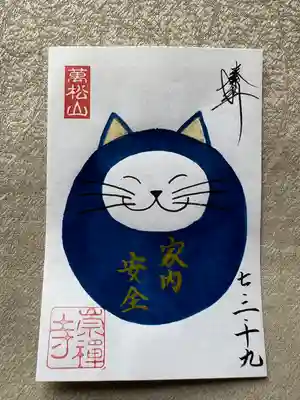 萬松山
奉拝
家内
安全
七・二・十九
崇禅寺